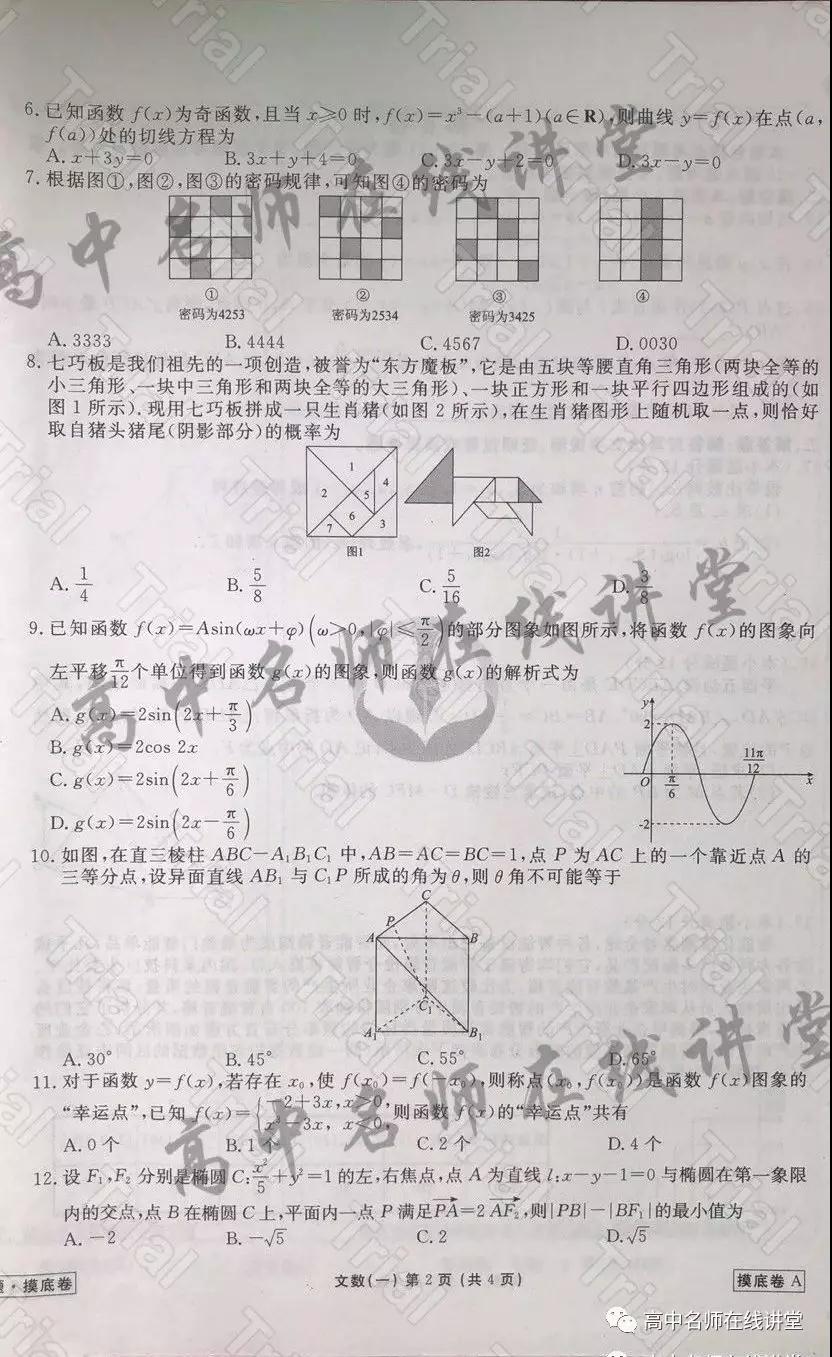 6.已知函数 f(x)为奇函数,且当 x≥0 时,f(x)=x³-(a+1)(a∈R),则曲线 y=f(x)在点(a,
f(a))处的切线方程为
A.x+3y=0 B.3x+y+4=0 C.3x-y+2=0 D.3x-y=0
7.根据图①,图②,图③的密码规律,可知图④的密码为
① ② ③ ④
密码为4253 密码为2534 密码为3425
A.3333 B.4444 C.4567 D.0030
8.七巧板是我们祖先的一项创造,被誉为“东方魔板”,它是由五块等腰直角三角形(两块全等的
小三角形、一块中三角形和两块全等的大三角形)、一块正方形和一块平行四边形组成的(如
图1所示).现用七巧板拼成一只生肖猪(如图2所示),在生肖猪图形上随机取一点,则恰好
取自猪头猪尾(阴影部分)的概率为
1 2 4 5 6 7 3
图1 图2
A.1/4 B.5/8 C.5/16 D.3/8
9.已知函数 f(x)=Asin(ωx+φ)(ω>0,|φ|≤π/2)的部分图象如图所示,将函数 f(x)的图象向
左平移π/12个单位得到函数 g(x)的图象,则函数 g(x)的解析式为
A.g(x)=2sin(2x+π/3)
B.g(x)=2cos 2x
C.g(x)=2sin(2x+π/6)
D.g(x)=2sin(2x-π/6)
y 2 O π/6 11π/12 x -2
10.如图,在直三棱柱 ABC-A₁B₁C₁ 中,AB=AC=BC=1,点 P 为AC 上的一个靠近点 A 的
三等分点,设异面直线 AB₁ 与 C₁P 所成的角为θ,则 θ角不可能等于
C P A B C₁ A₁ B₁
A.30° B.45° C.55° D.65°
11.对于函数 y=f(x),若存在 x₀,使 f(x₀)=f(-x₀),则称点(x₀,f(x₀))是函数 f(x)图象的
“幸运点”,已知 f(x)={-2+3x,x>0, x³-3x, x<0, 则函数 f(x)的“幸运点”共有
A.0个 B.1个 C.2个 D.4个
12.设 F₁,F₂ 分别是椭圆 C:x²/5+y²=1的左,右焦点,点 A 为直线 l:x-y-1=0 与椭圆在第一象限
内的交点,点 B在椭圆 C上,平面内一点 P 满足PA=2 AF₂,则|PB|-|BF₁|的最小值为
A.-2 B.-√5 C.2 D.√5
·摸底卷
文数(一) 第2页(共4页)
摸底卷 A
高中名师在线讲堂
高中名师在线讲堂
高中名师在线讲堂
高中名师在线讲堂
Trial